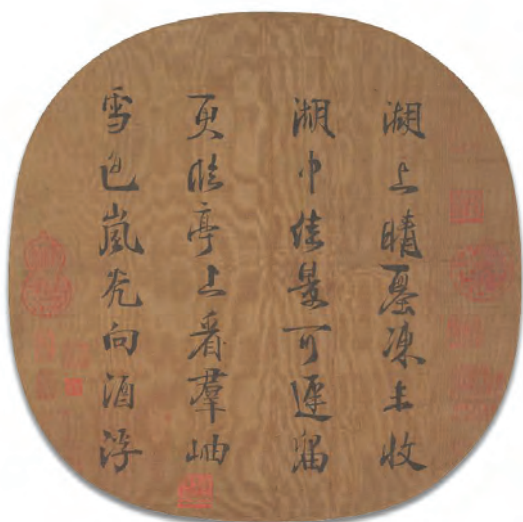 湖上晴凍未收
湖中佳景可遲留
更臨亭上看羣岫
雪色嵐光向酒浮